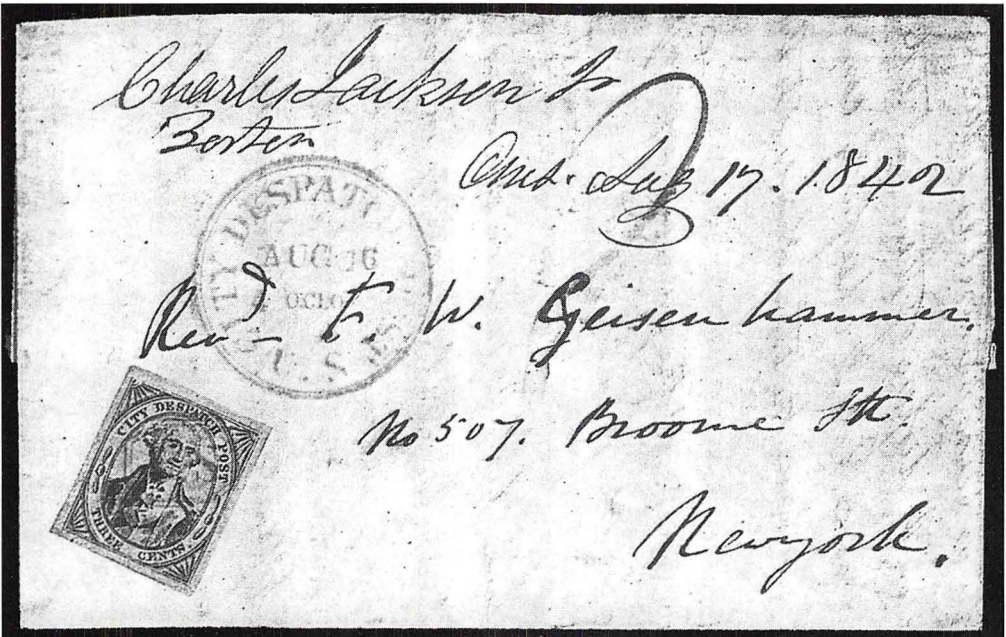 Charles Jackson Jr
Boston
Ans. Aug 17. 1842
CITY DESPATC
AUG 16
OCLO
U.S.
Revd F W. Geisenhammer.
No 507. Broome Stt.
Newyork.
CITY DESPATCH POST
THREE CENTS.